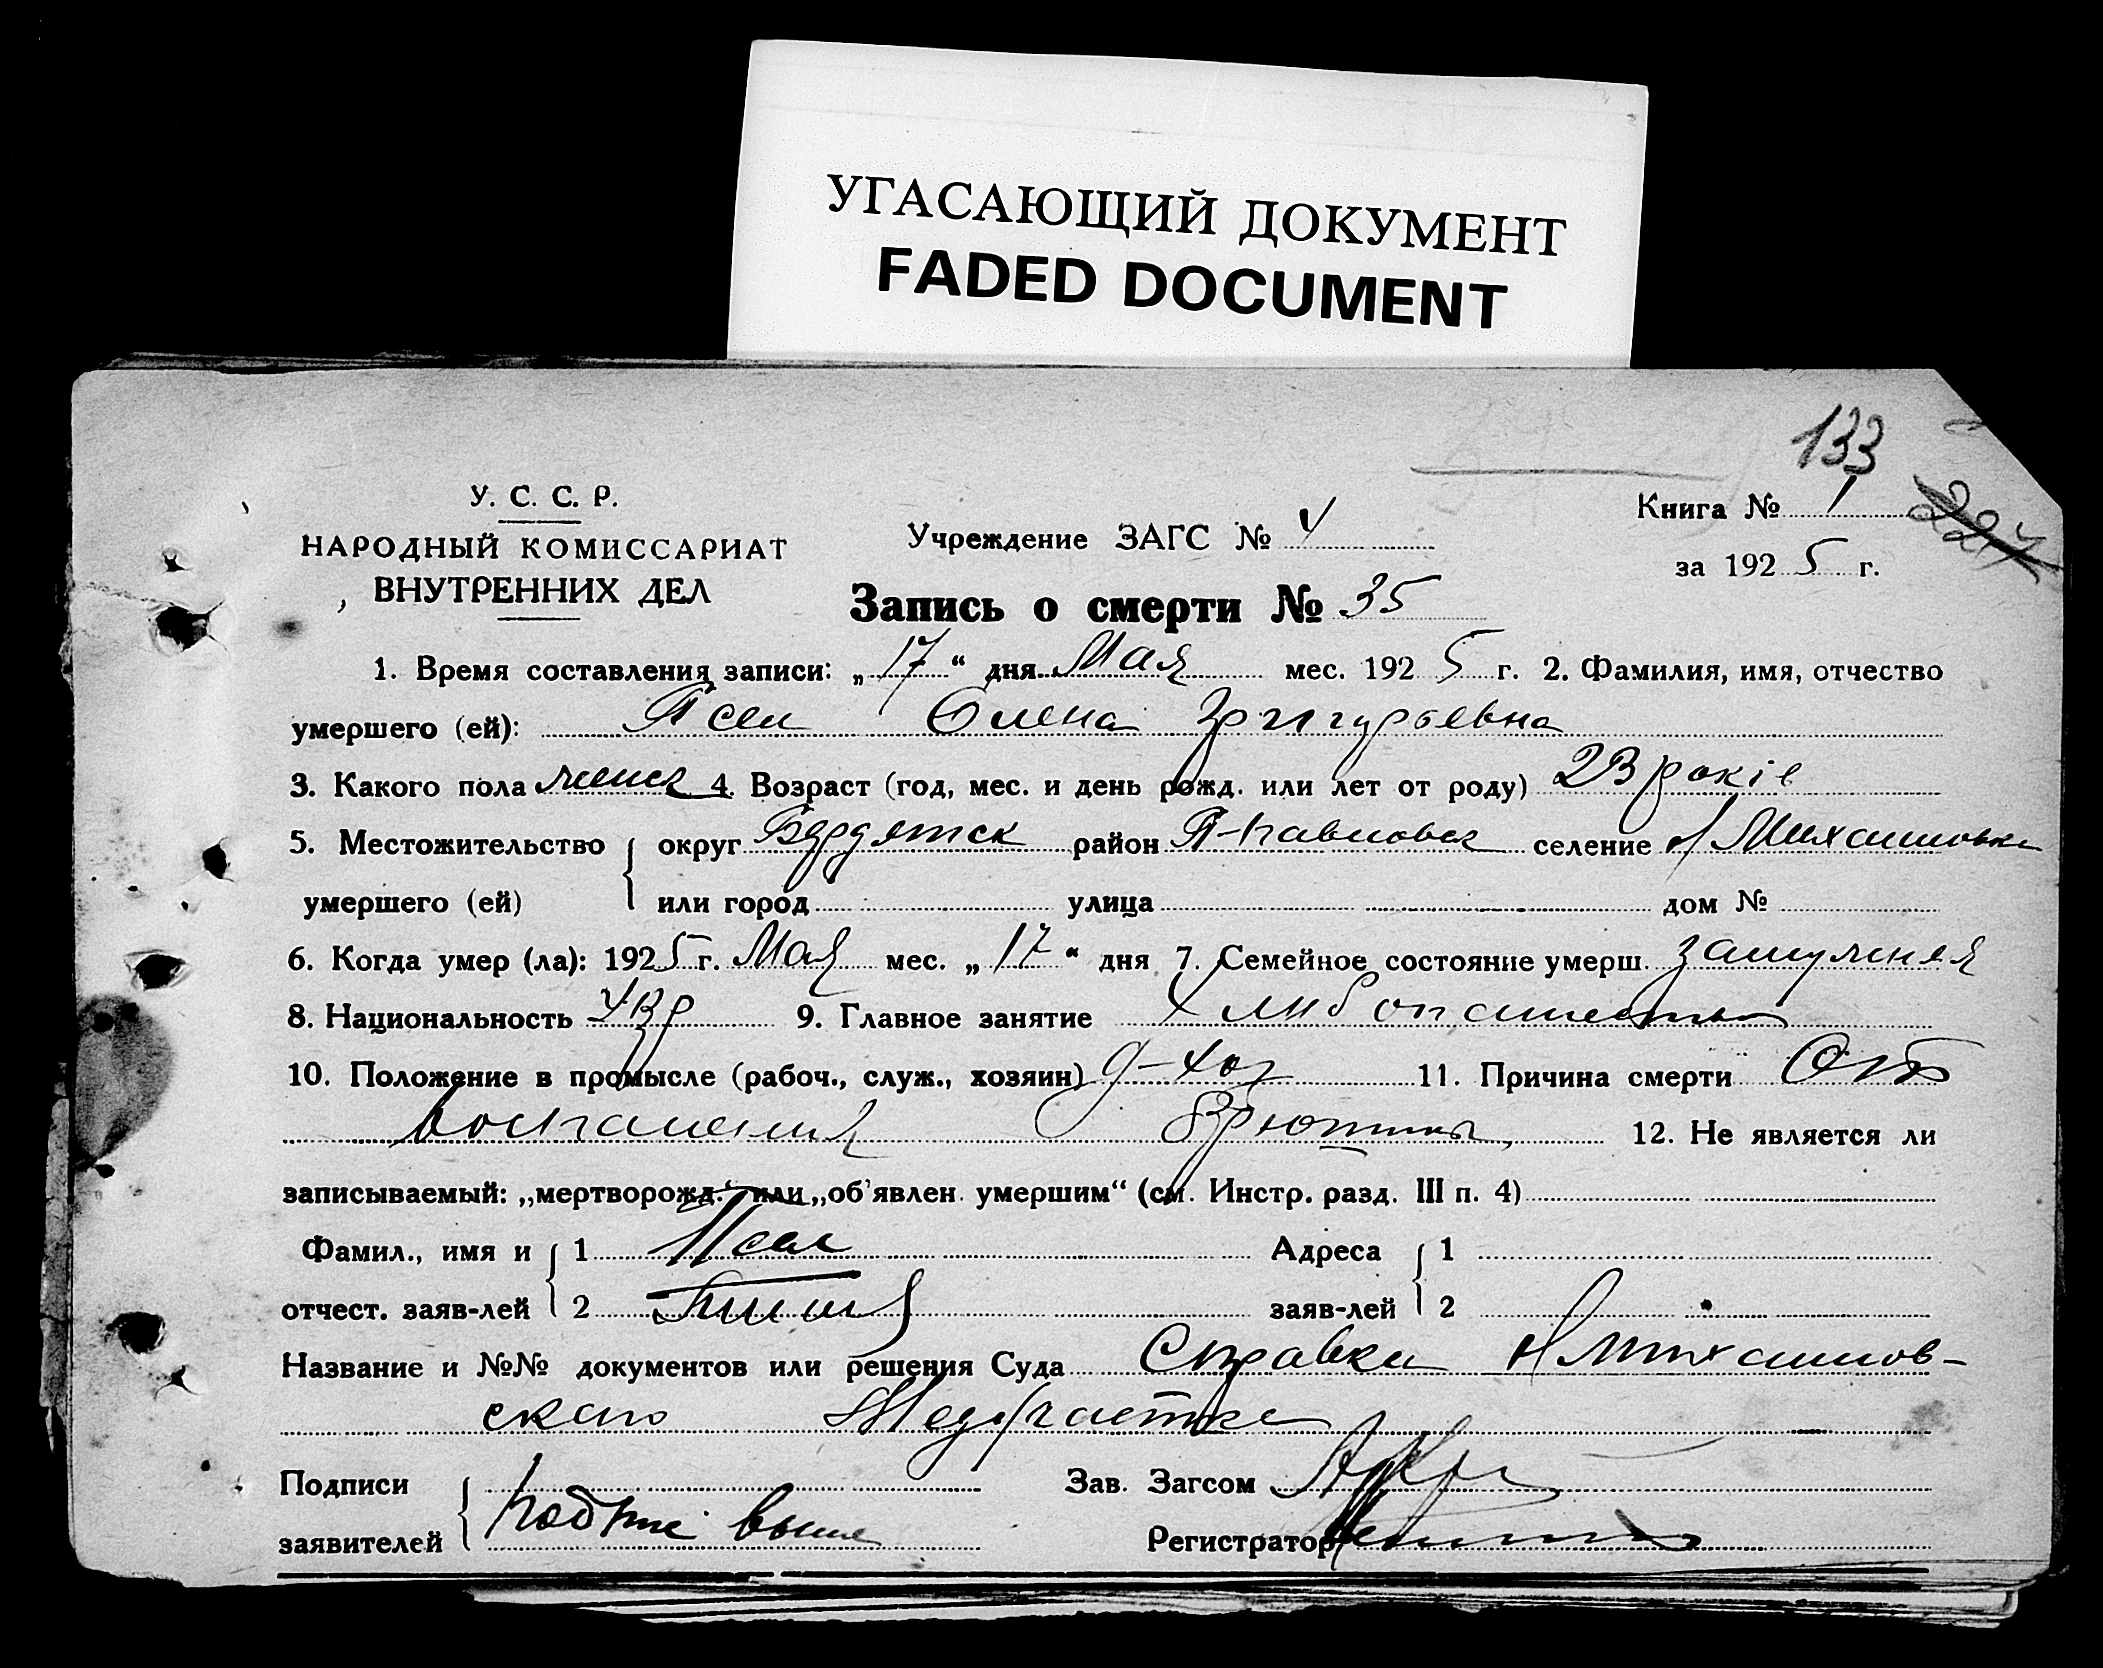 УГАСАЮЩИЙ ДОКУМЕНТ
FADED DOCUMENT
133
227
У. С. С. Р.
НАРОДНЫЙ КОМИССАРИАТ
ВНУТРЕННИХ ДЕЛ
Учреждение ЗАГС № 4
Книга № 1
за 1925 г.
Запись о смерти № 35
1. Время составления записи: „17“ дня Мая мес. 1925 г. 2. Фамилия, имя, отчество
умершего (ей): Псел Олена Григурьевна
3. Какого пола женск 4. Возраст (год, мес. и день рожд. или лет от роду) 23 років
5. Местожительство округ Бердянск район П-Павловск селение Михайловка
умершего (ей) или город улица дом №
6. Когда умер (ла): 1925 г. Мая мес. „17“ дня 7. Семейное состояние умерш. замужняя
8. Национальность Укр 9. Главное занятие Хлибопашество
10. Положение в промысле (рабоч., служ., хозяин) 11. Причина смерти От
воспаления Брюшины,
12. Не является ли
записываемый: „мертворожд.“ или „об'явлен умершим“ (см. Инстр. разд. III п. 4)
Фамил., имя и 1 Псел Адреса 1
отчест. заяв-лей 2 заяв-лей 2
Название и №№ документов или решения Суда Справка Н Михайлов-
скаго Медучастка
Подписи
заявителей выше
Зав. Загсом
Регистратор